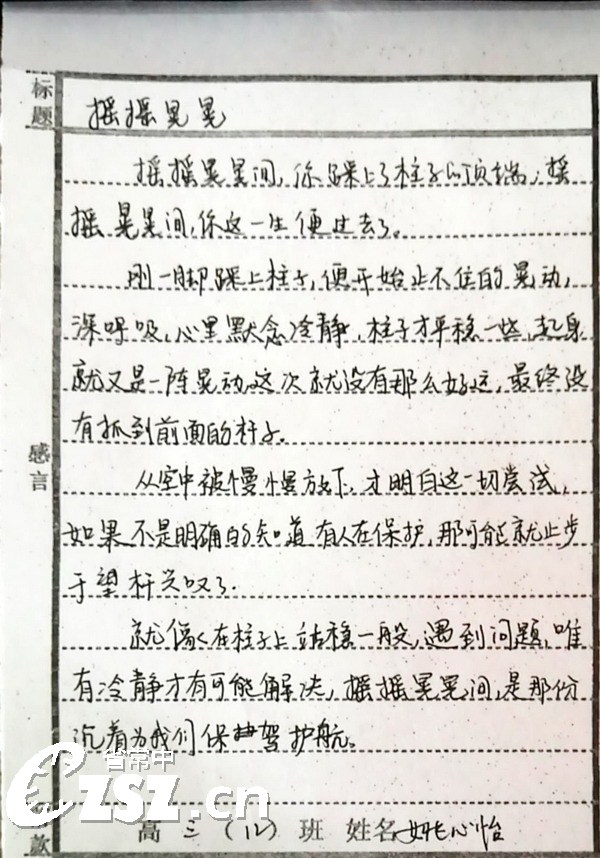 标题
摇摇晃晃
摇摇晃晃间,你踩上了柱子的顶端,摇
摇晃晃间,你这一生便过去了。
刚一脚踩上柱子,便开始止不住的晃动,
深呼吸,心里默念冷静,柱子才平稳一些,起身
就又是一阵晃动。这次就没有那么好运,最终没
有抓到前面的杆子。
从空中被慢慢放下,才明白这一切尝试,
如果不是明确的知道有人在保护,那可能就止步
于望杆兴叹了。
就像在柱子上站稳一般,遇到问题,唯
有冷静才有可能解决,摇摇晃晃间,是那份
沉着为我们保驾护航。
感言
省常中
czsz.cn
款
高三(12)班 姓名 姚心怡